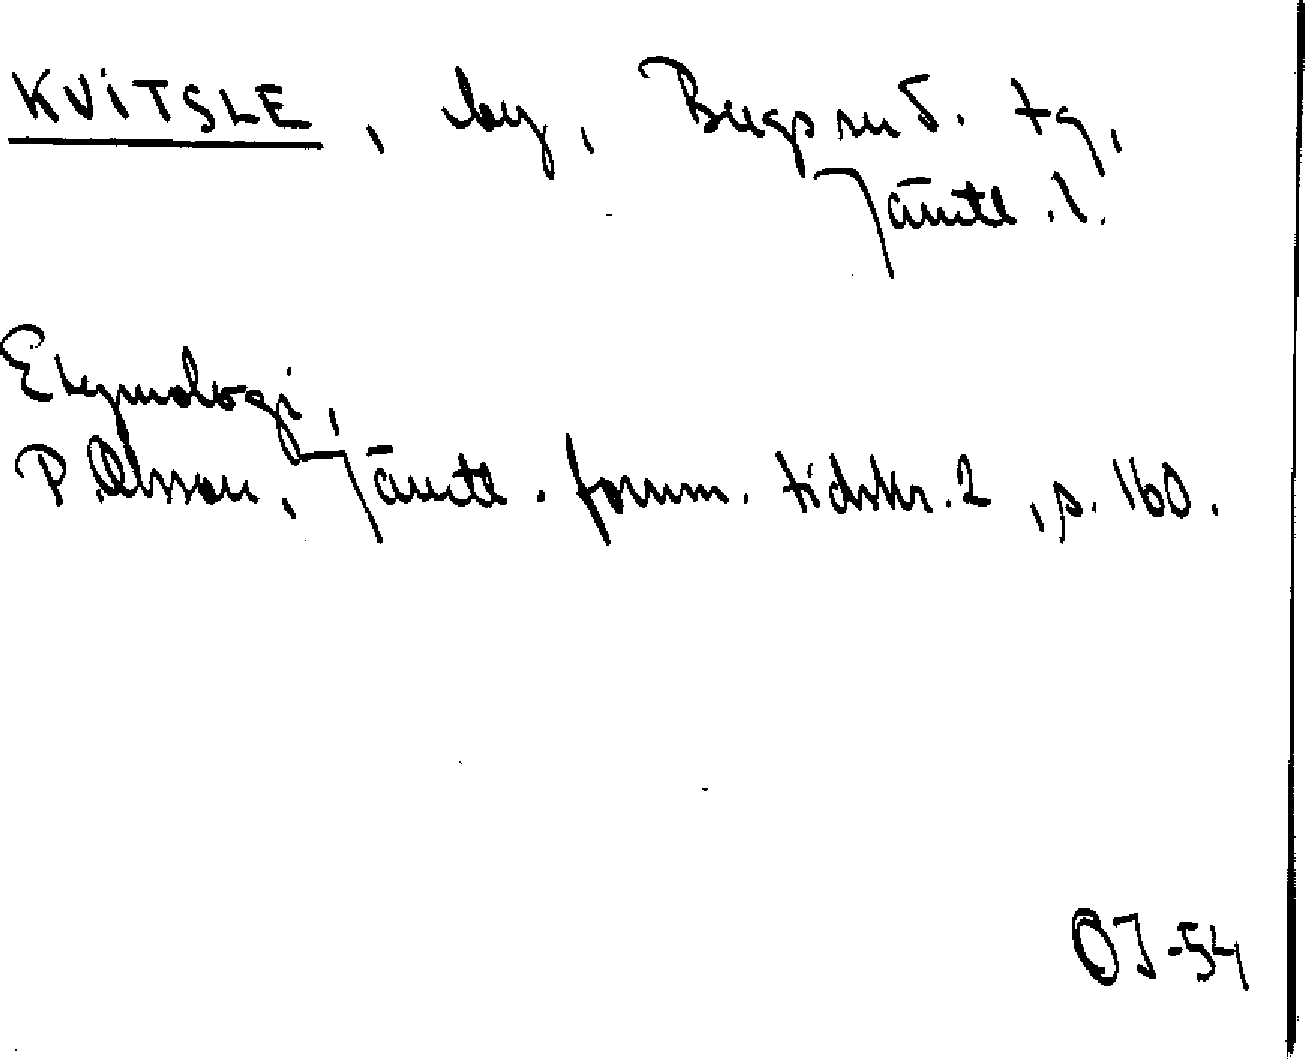 KVITSLE, by, Bergs sn o. tg,
Jämtl. l.
Etymologi,
P. Olsson, Jämtl. fornm. tidskr. 2, s. 160.
OJ-54